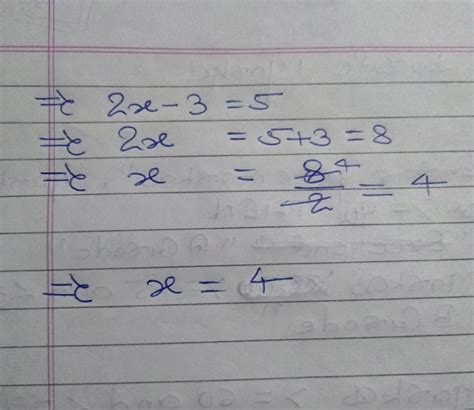 ⇒ 2x - 3 = 5
⇒ 2x = 5+3 = 8
⇒ x = 8/2 4 = 4
⇒ x = 4